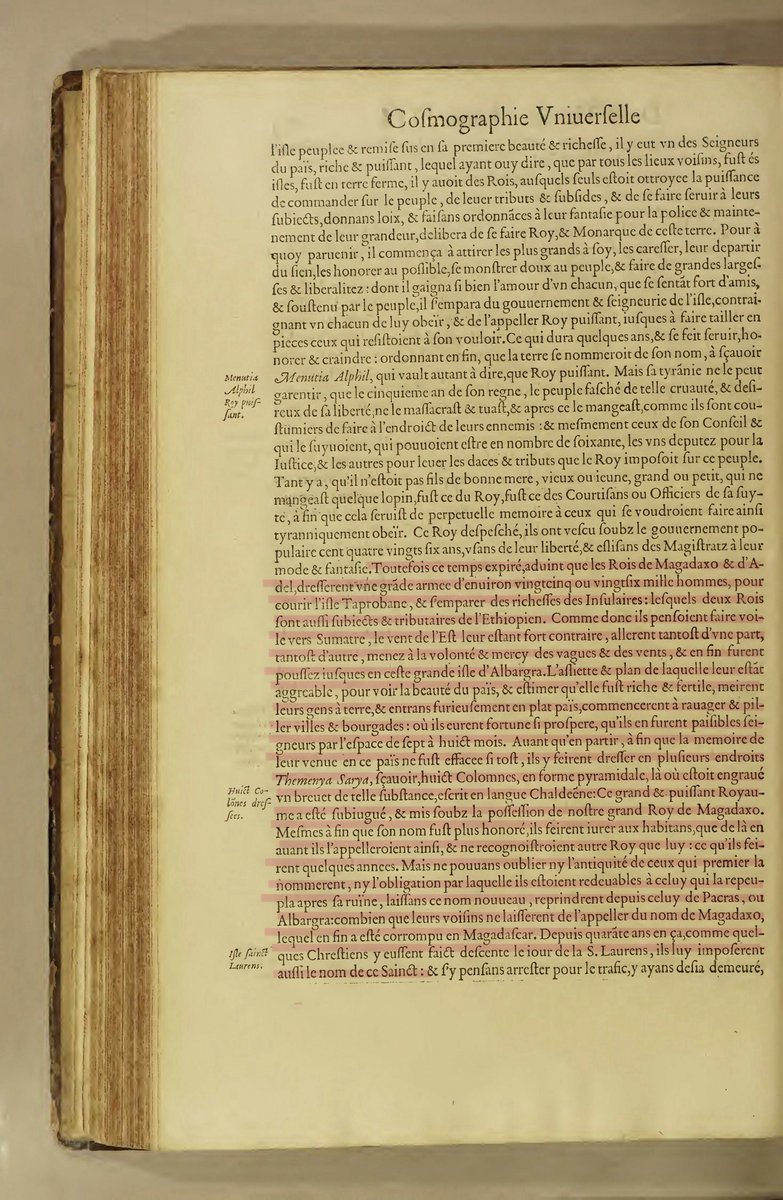 Coſmographie Vniuerſelle
l'iſle peuplee & remiſe ſus en ſa premiere beauté & richeſſe, il y eut vn des Seigneurs
du païs, riche & puiſſant, lequel ayant ouy dire, que par tous les lieux voiſins, fuſt és
iſles, fuſt en terre ferme, il y auoit des Rois, auſquels ſeuls eſtoit ottroyee la puiſſance
de commander ſur le peuple, de leuer tributs & ſubſides, & de ſe faire ſeruir à leurs
ſubiects, donnans loix, & faiſans ordonnāces à leur fantaſie pour la police & mainte-
nement de leur grandeur, delibera de ſe faire Roy, & Monarque de ceſte terre. Pour à
quoy paruenir, il commença à attirer les plus grands à ſoy, les careſſer, leur departir
du ſien, les honorer au poſſible, ſe monſtrer doux au peuple, & faire de grandes largeſ-
ſes & liberalitez: dont il gaigna ſi bien l'amour d'vn chacun, que ſe ſentāt fort d'amis,
& ſouſtenu par le peuple, il s'empara du gouuernement & ſeigneurie de l'iſle, contrai-
gnant vn chacun de luy obeïr, & de l'appeller Roy puiſſant, iuſques à faire tailler en
pieces ceux qui reſiſtoient à ſon vouloir. Ce qui dura quelques ans, & ſe feit ſeruir, ho-
norer & craindre: ordonnant en fin, que la terre ſe nommeroit de ſon nom, à ſçauoir
Menutia Alphil, qui vault autant à dire, que Roy puiſſant. Mais ſa tyrānie ne le peut
Menutia
Alphil
Roy puiſ-
ſant.
garentir, que le cinquieme an de ſon regne, le peuple faſché de telle cruauté, & deſi-
reux de ſa liberté, ne le maſſacraſt & tuaſt, & apres ce le mangeaſt, comme ils ſont cou-
ſtumiers de faire à l'endroict de leurs ennemis: & meſmement ceux de ſon Conſeil &
qui le ſuyuoient, qui pouuoient eſtre en nombre de ſoixante, les vns deputez pour la
Iuſtice, & les autres pour leuer les daces & tributs que le Roy impoſoit ſur ce peuple.
Tant y a, qu'il n'eſtoit pas fils de bonne mere, vieux ou ieune, grand ou petit, qui ne
mangeaſt quelque lopin, fuſt ce du Roy, fuſt ce des Courtiſans ou Officiers de ſa ſuy-
te, à fin que cela ſeruiſt de perpetuelle memoire à ceux qui ſe voudroient faire ainſi
tyranniquement obeïr. Ce Roy deſpeſché, ils ont veſcu ſoubz le gouuernement po-
pulaire cent quatre vingts ſix ans, vſans de leur liberté, & eſliſans des Magiſtratz à leur
mode & fantaſie. Toutefois ce temps expiré, aduint que les Rois de Magadaxo & d'A-
del, dreſſerent vne grāde armee d'enuiron vingtcinq ou vingtſix mille hommes, pour
courir l'iſle Taprobane, & s'emparer des richeſſes des Inſulaires: leſquels deux Rois
ſont auſſi ſubiects & tributaires de l'Ethiopien. Comme donc ils penſoient faire voi-
le vers Sumatre, le vent de l'Eſt leur eſtant fort contraire, allerent tantoſt d'vne part,
tantoſt d'autre, menez à la volonté & mercy des vagues & des vents, & en fin furent
pouſſez iuſques en ceſte grande iſle d'Albargra. L'aſſiette & plan de laquelle leur eſtāt
aggreable, pour voir la beauté du païs, & eſtimer qu'elle fuſt riche & fertile, meirent
leurs gens à terre, & entrans furieuſement en plat païs, commencerent à rauager & pil-
ler villes & bourgades: où ils eurent fortune ſi proſpere, qu'ils en furent paiſibles ſei-
gneurs par l'eſpace de ſept à huict mois. Auant qu'en partir, à fin que la memoire de
leur venue en ce païs ne fuſt effacee ſi toſt, ils y feirent dreſſer en pluſieurs endroits
Themenya Sarya, ſçauoir, huict Colomnes, en forme pyramidale, là où eſtoit engraué
Huict Co-
lōnes dreſ-
ſees.
vn breuet de telle ſubſtance, eſcrit en langue Chaldeëne: Ce grand & puiſſant Royau-
me a eſté ſubiugué, & mis ſoubz la poſſeſſion de noſtre grand Roy de Magadaxo.
Meſmes à fin que ſon nom fuſt plus honoré, ils feirent iurer aux habitans, que de là en
auant ils l'appelleroient ainſi, & ne recognoiſtroient autre Roy que luy: ce qu'ils fei-
rent quelques annees. Mais ne pouuans oublier ny l'antiquité de ceux qui premier la
nommerent, ny l'obligation par laquelle ils eſtoient redeuables à celuy qui la repeu-
pla apres ſa ruïne, laiſſans ce nom nouueau, reprindrent depuis celuy de Pacras, ou
Albargra: combien que leurs voiſins ne laiſſerent de l'appeller du nom de Magadaxo,
lequel en fin a eſté corrompu en Magadaſcar. Depuis quarāte ans en ça, comme quel-
ques Chreſtiens y euſſent faict deſcente le iour de la S. Laurens, ils luy impoſerent
Iſle ſainct
Laurens.
auſſi le nom de ce Sainct: & s'y penſans arreſter pour le trafic, y ayans deſia demeuré,